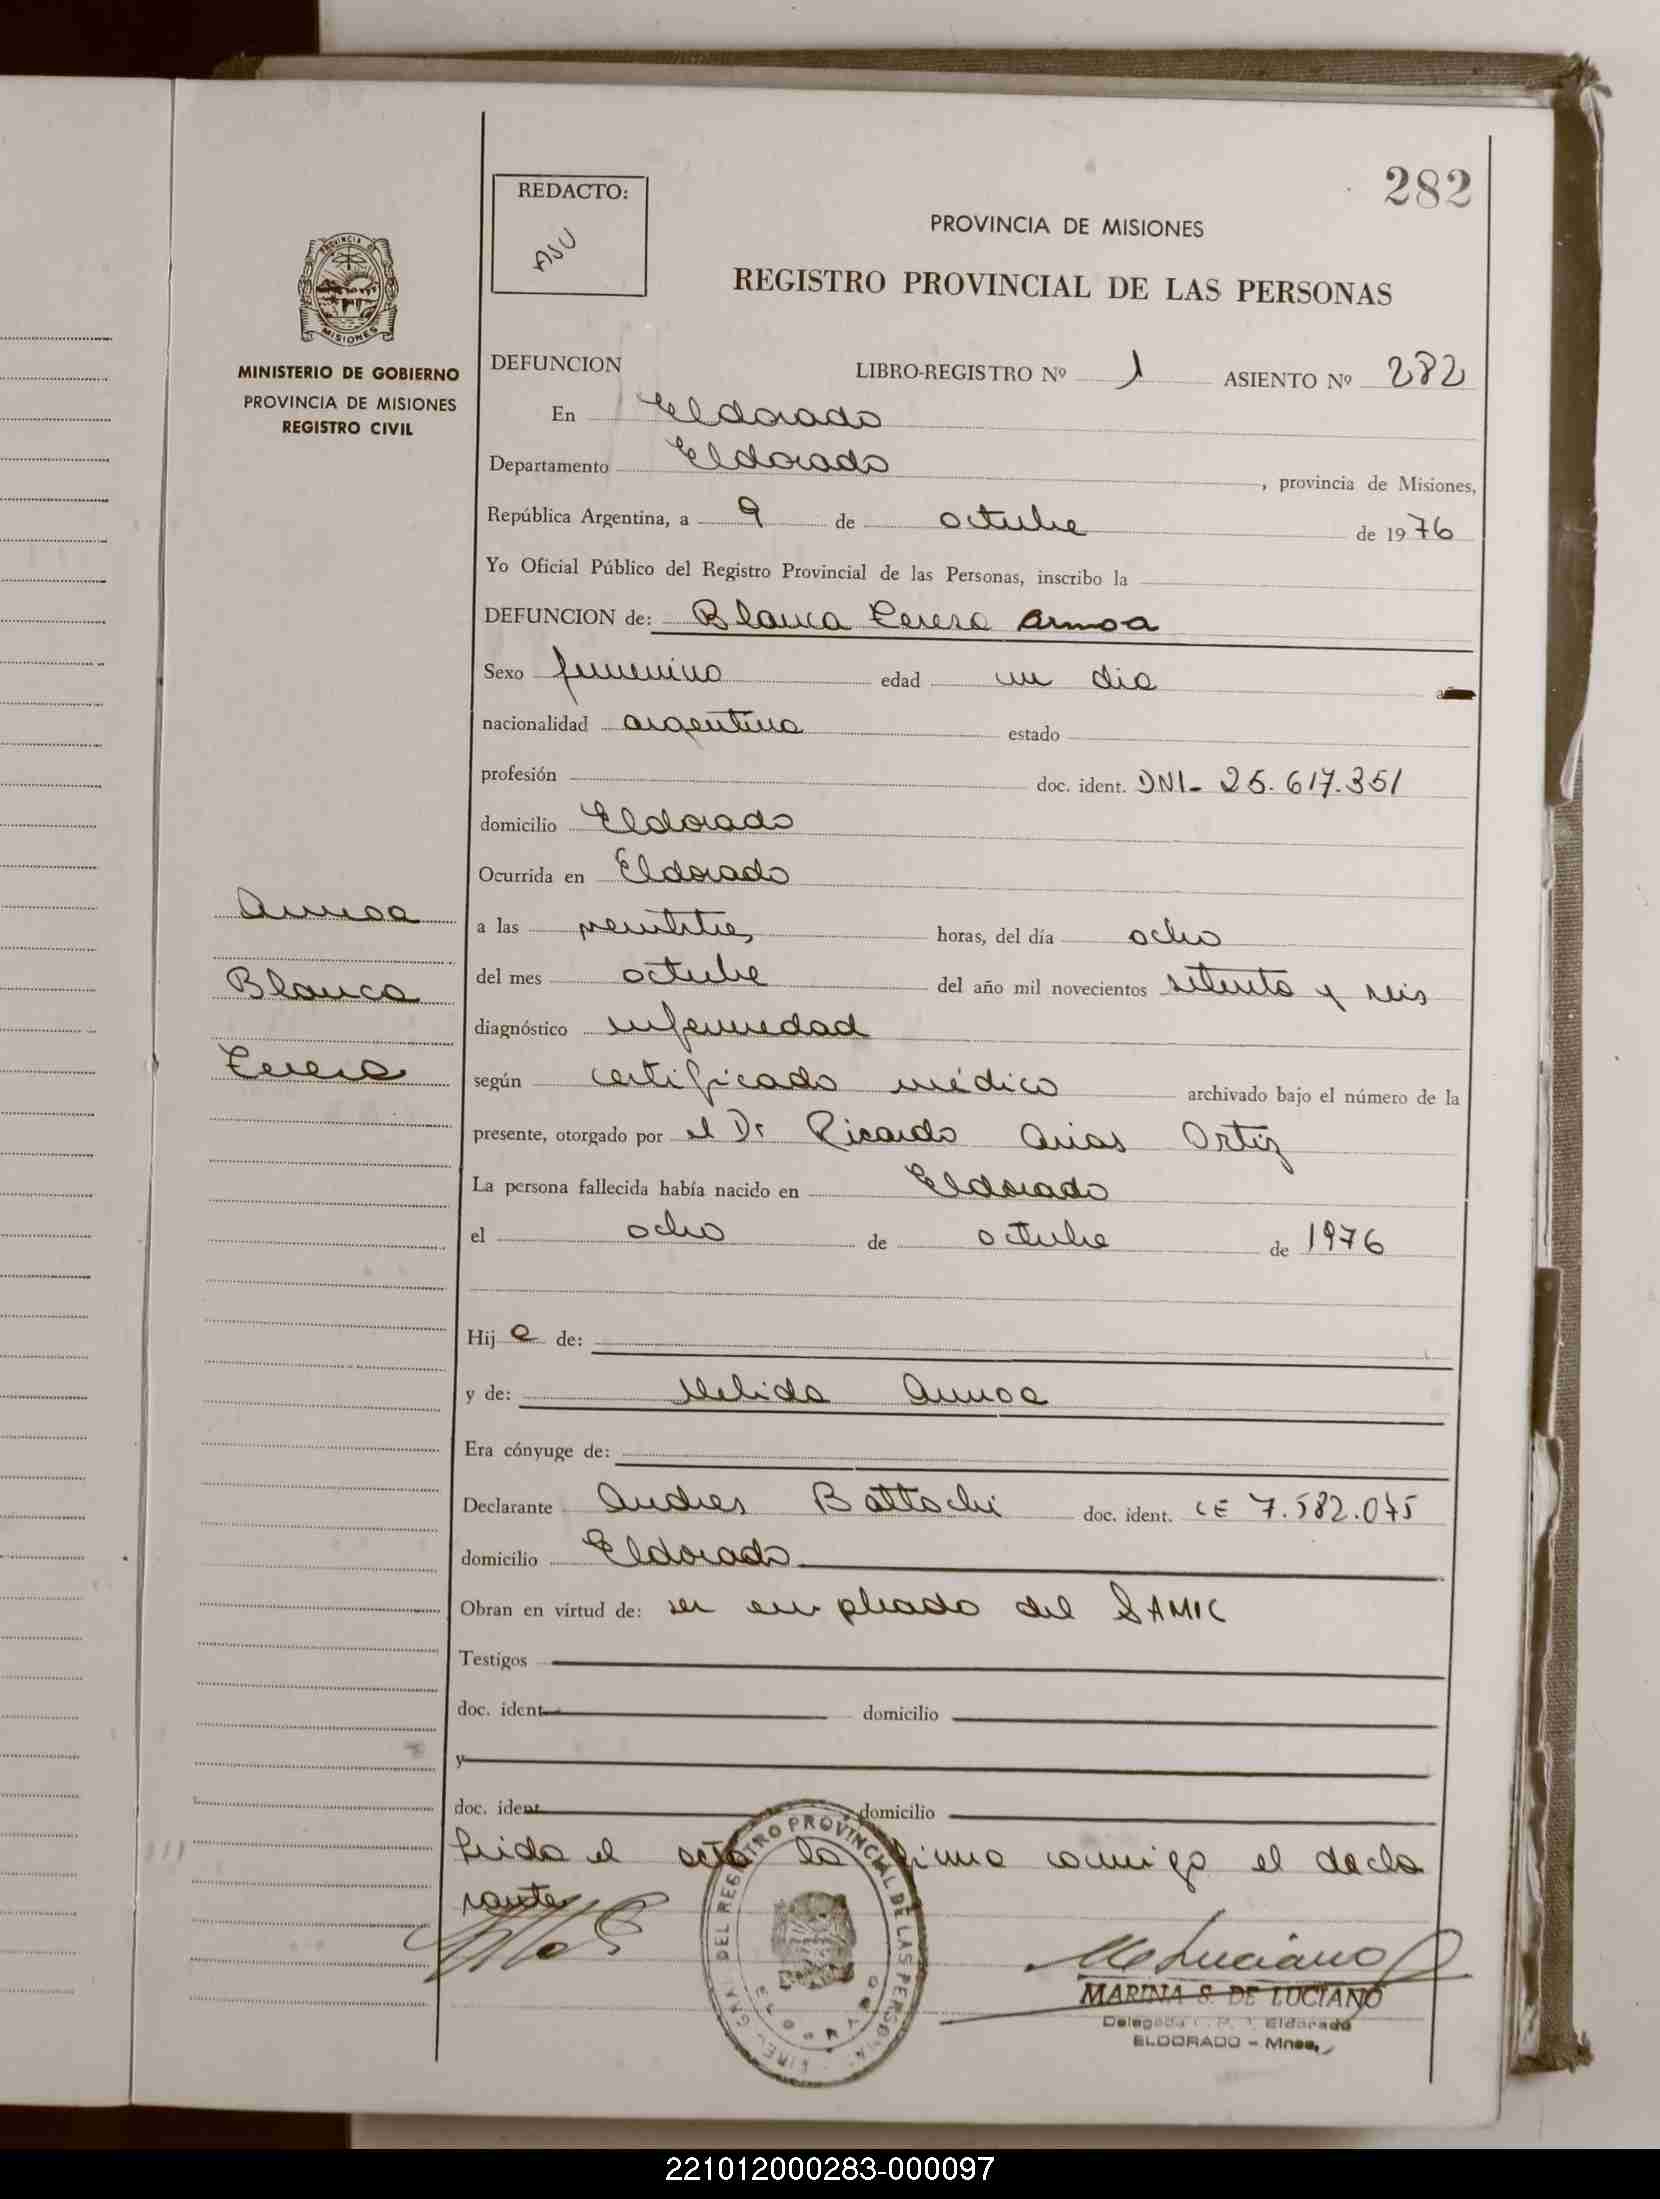 282
REDACTO:
ASU
PROVINCIA DE MISIONES
REGISTRO PROVINCIAL DE LAS PERSONAS
MINISTERIO DE GOBIERNO
PROVINCIA DE MISIONES
REGISTRO CIVIL
DEFUNCION LIBRO-REGISTRO Nº 1 ASIENTO Nº 282
En Eldorado
Departamento Eldorado, provincia de Misiones,
República Argentina, a 9 de octubre de 1976
Yo Oficial Público del Registro Provincial de las Personas, inscribo la
DEFUNCION de: Blanca Teresa Armoa
Sexo femenino edad un dia
nacionalidad argentina estado
profesión doc. ident. DNI- 25.617.351
domicilio Eldorado
Ocurrida en Eldorado
Armoa
Blanca
Teresa
a las veintitres horas, del día ocho
del mes octubre del año mil novecientos setenta y seis
diagnóstico enfermedad
según certificado médico archivado bajo el número de la
presente, otorgado por el Dr Ricardo Arias Ortiz
La persona fallecida había nacido en Eldorado
el ocho de octubre de 1976
Hija de:
y de: Nelida Armoa
Era cónyuge de:
Declarante Andres Battochi doc. ident. CE 7.582.075
domicilio Eldorado
Obran en virtud de: ser empleado del SAMIC
Testigos
doc. ident domicilio
y
doc. ident domicilio
Leida el acta la firma conmigo el decla
rante
DEL REGISTRO PROVINCIAL DE LAS PERSO
ELDORADO
MdeLuciano
MARINA S. DE LUCIANO
Delegada Eldorado
ELDORADO - Mnes.
221012000283-000097